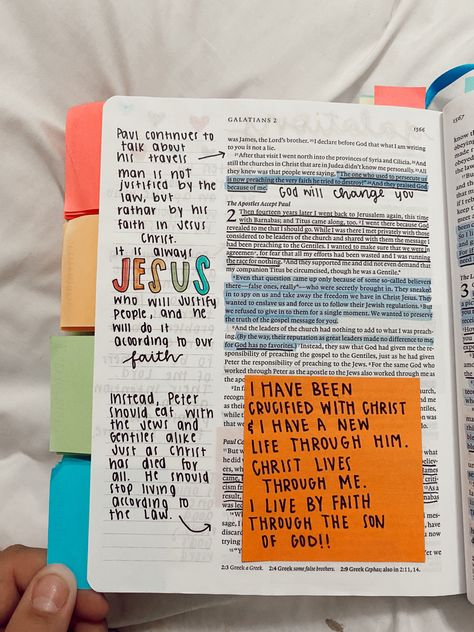 GALATIANS 2
1366
1367
PAUL CONTINUES TO
TALK ABOUT
HIS TRAVELS
MAN IS NOT
JUSTIFIED BY THE
LAW, BUT
RATHAR BY HIS
FAITH IN JESUS
CHRIST.
It is ALWAYS
JESUS
WHO WILL JUSTIFY
PEOPLE, AND HE
WILL DO IT
ACCORDING TO OUR
faith
INSTEAD, PETER
SHOULD EAT WITH
THE JEWS AND
GENTILES ALIKE
JUST AS CHRIST
HAS DIED FOR
ALL. HE SHOULD
STOP LIVING
ACCORDING TO
THE LAW.
was James, the Lord's brother. 20I declare before God that what I am writing
to you is not a lie.
21After that visit I went north into the provinces of Syria and Cilicia. 22And
still the churches in Christ that are in Judea didn't know me personally. 23All
they knew was that people were saying, "The one who used to persecute us
is now preaching the very faith he tried to destroy!" 24And they praised God
because of me.
GOD WILL change YOU
The Apostles Accept Paul
2 Then fourteen years later I went back to Jerusalem again, this time
with Barnabas; and Titus came along, too. 2I went there because God
revealed to me that I should go. While I was there I met privately with those
considered to be leaders of the church and shared with them the message I
had been preaching to the Gentiles. I wanted to make sure that we were in
agreement, for fear that all my efforts had been wasted and I was running
the race for nothing. 3And they supported me and did not even demand that
my companion Titus be circumcised, though he was a Gentile.
4Even that question came up only because of some so-called believers
there—false ones, really—who were secretly brought in. They sneaked
in to spy on us and take away the freedom we have in Christ Jesus. They
wanted to enslave us and force us to follow their Jewish regulations. 5But
we refused to give in to them for a single moment. We wanted to preserve
the truth of the gospel message for you.
6And the leaders of the church had nothing to add to what I was preach-
ing. (By the way, their reputation as great leaders made no difference to me,
for God has no favorites.) 7Instead, they saw that God had given me the re-
sponsibility of preaching the gospel to the Gentiles, just as he had given
Peter the responsibility of preaching to the Jews. 8For the same God who
worked through Peter as the apostle to the Jews also worked through me as
I HAVE BEEN
CRUCIFIED WITH CHRIST
& I HAVE A NEW
LIFE THROUGH HIM.
CHRIST LIVES
THROUGH ME.
I LIVE BY FAITH
THROUGH THE SON
OF GOD!!
2:3 Greek a Greek. 2:4 Greek some false brothers. 2:9 Greek Cephas; also in 2:11, 14.